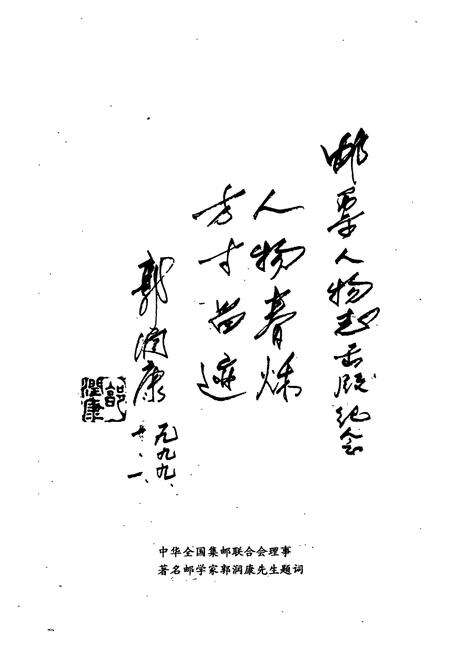 邮票人物志出版纪念
人物春秋
方寸留迹
郭润康
一九九九、
十、一、
郭润康
中华全国集邮联合会理事
著名邮学家郭润康先生题词